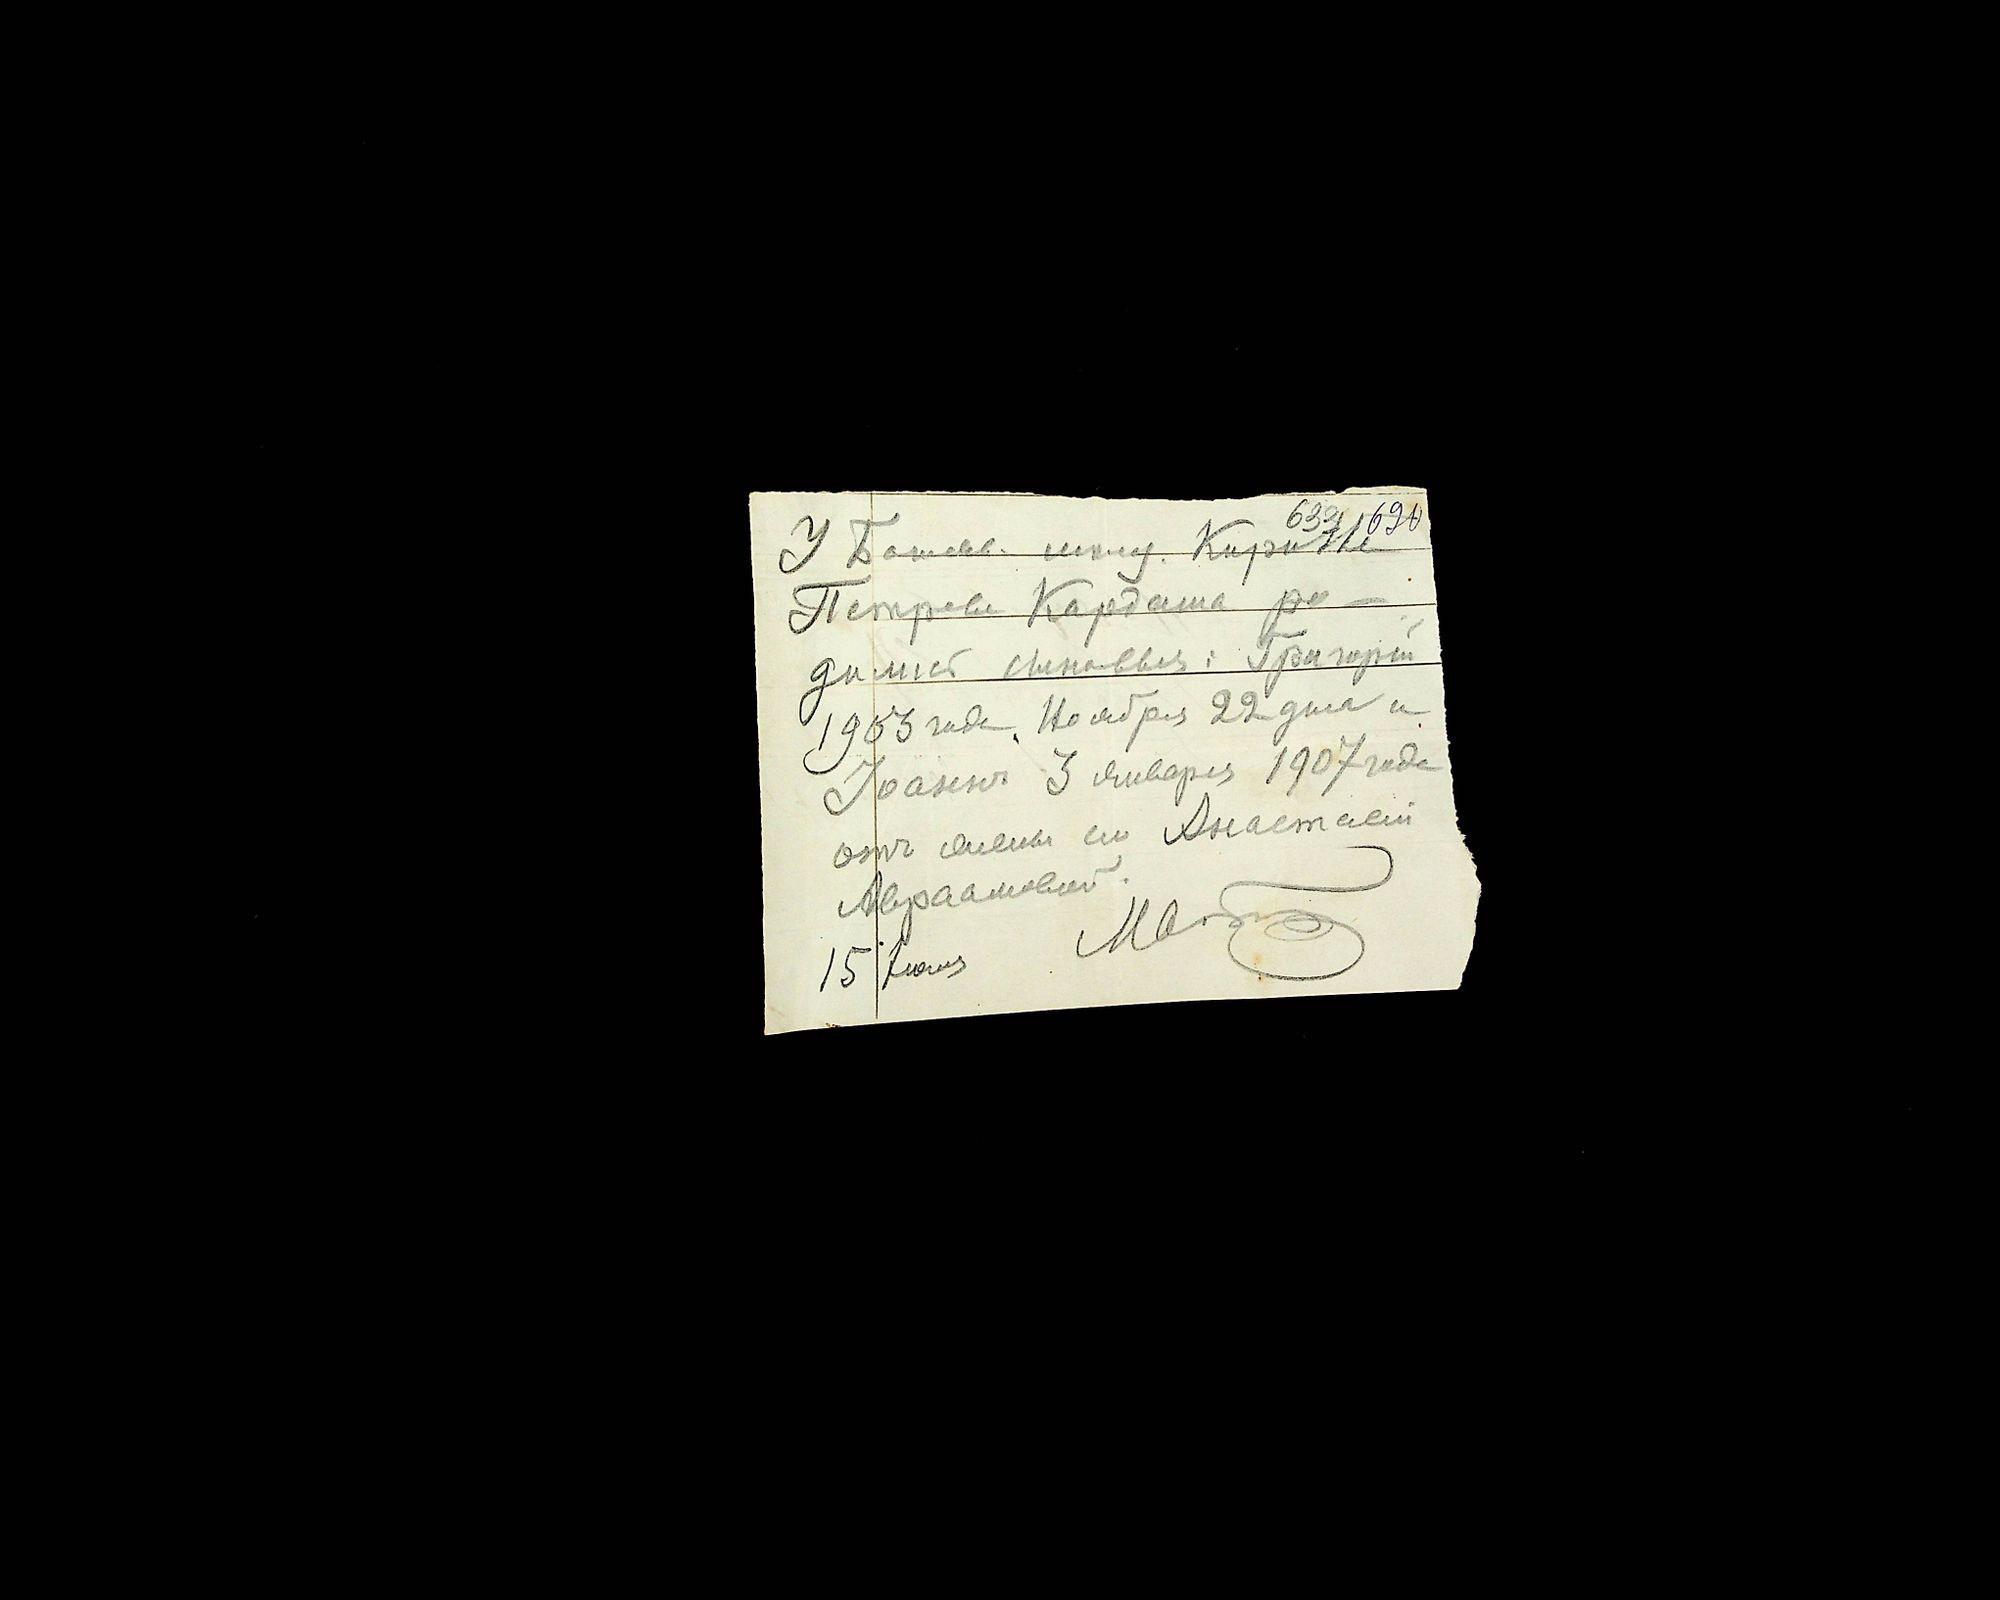 633 690
У Кирилла
Петрова Кардаша ро-
дились сыновья: Григорій
1903 года, Ноября 22 дня и
Іоаннъ 3 января 1907 года
отъ жены его Анастасіи
Авраамовой.
15 Іюля